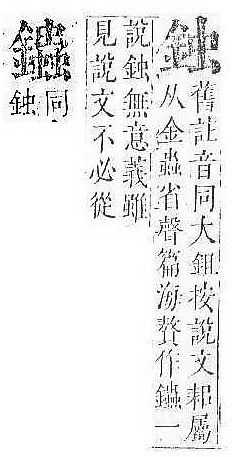 鉵
舊註音同大鉏按說文耜屬
从金蟲省聲篇海贅作一
說鉵無意義雖
見說文不必從
同
鉵